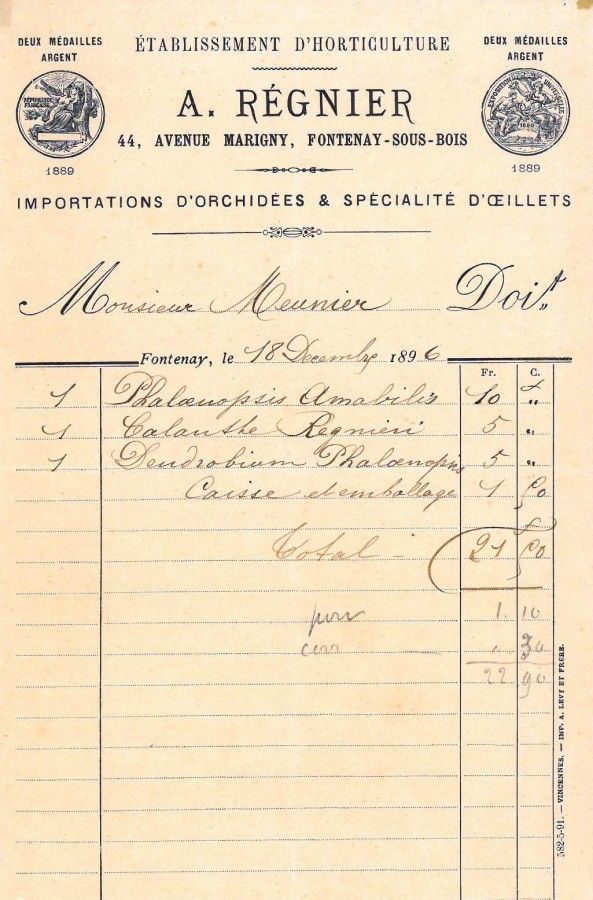 DEUX MÉDAILLES
ARGENT
RÉPUBLIQUE
FRANÇAISE
1889
ÉTABLISSEMENT D'HORTICULTURE
A. RÉGNIER
44, AVENUE MARIGNY, FONTENAY-SOUS-BOIS
DEUX MÉDAILLES
ARGENT
EXPOSITION UNIVERSELLE
1889
1889
IMPORTATIONS D'ORCHIDÉES & SPÉCIALITÉ D'ŒILLETS
Monsieur Meunier Doit
Fontenay, le 18 Decembre 1896
Fr. C.
1 Phalœnopsis Amabilis 10 "
1 Calanthe Regnieri 5 "
1 Dendrobium Phalœnopsis 5 "
Caisse et emballage 1 50
Total - 21 50
port 1. 10
" 30
22 90
582-5-91. — VINCENNES. — IMP. A. LEVY ET FRÈRE.